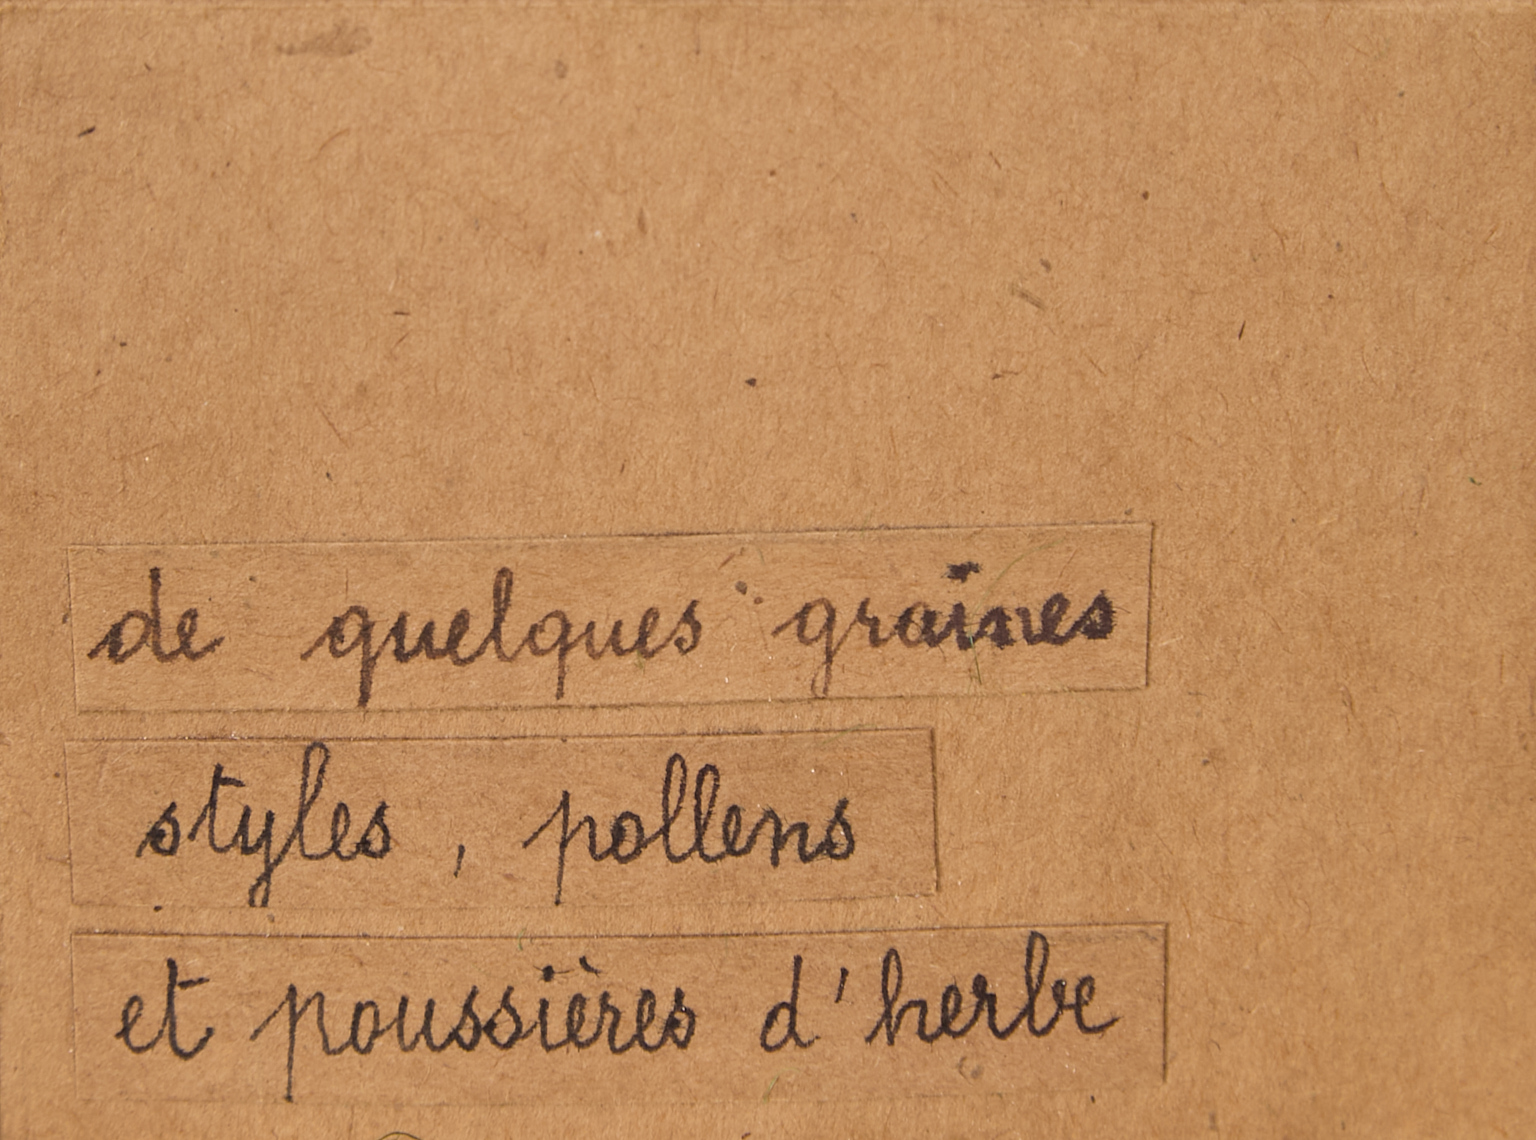 de quelques graines
styles, pollens
et poussières d'herbe